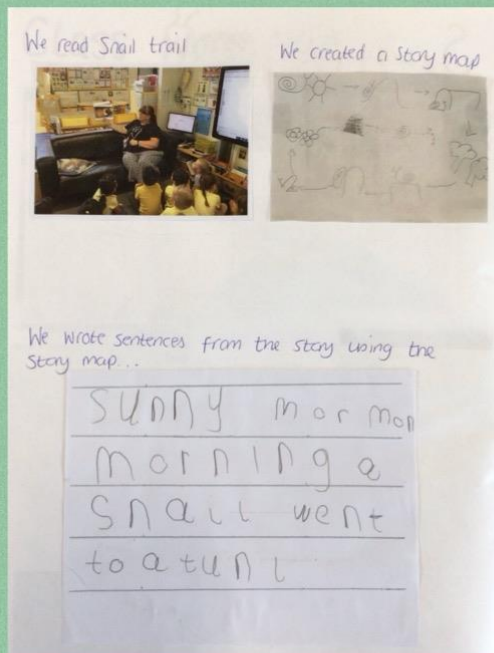 We read Snail trail
We created a Story map
We wrote sentences from the story using the
story map...
sunny mor mon
morning a
snail went
to a tun l